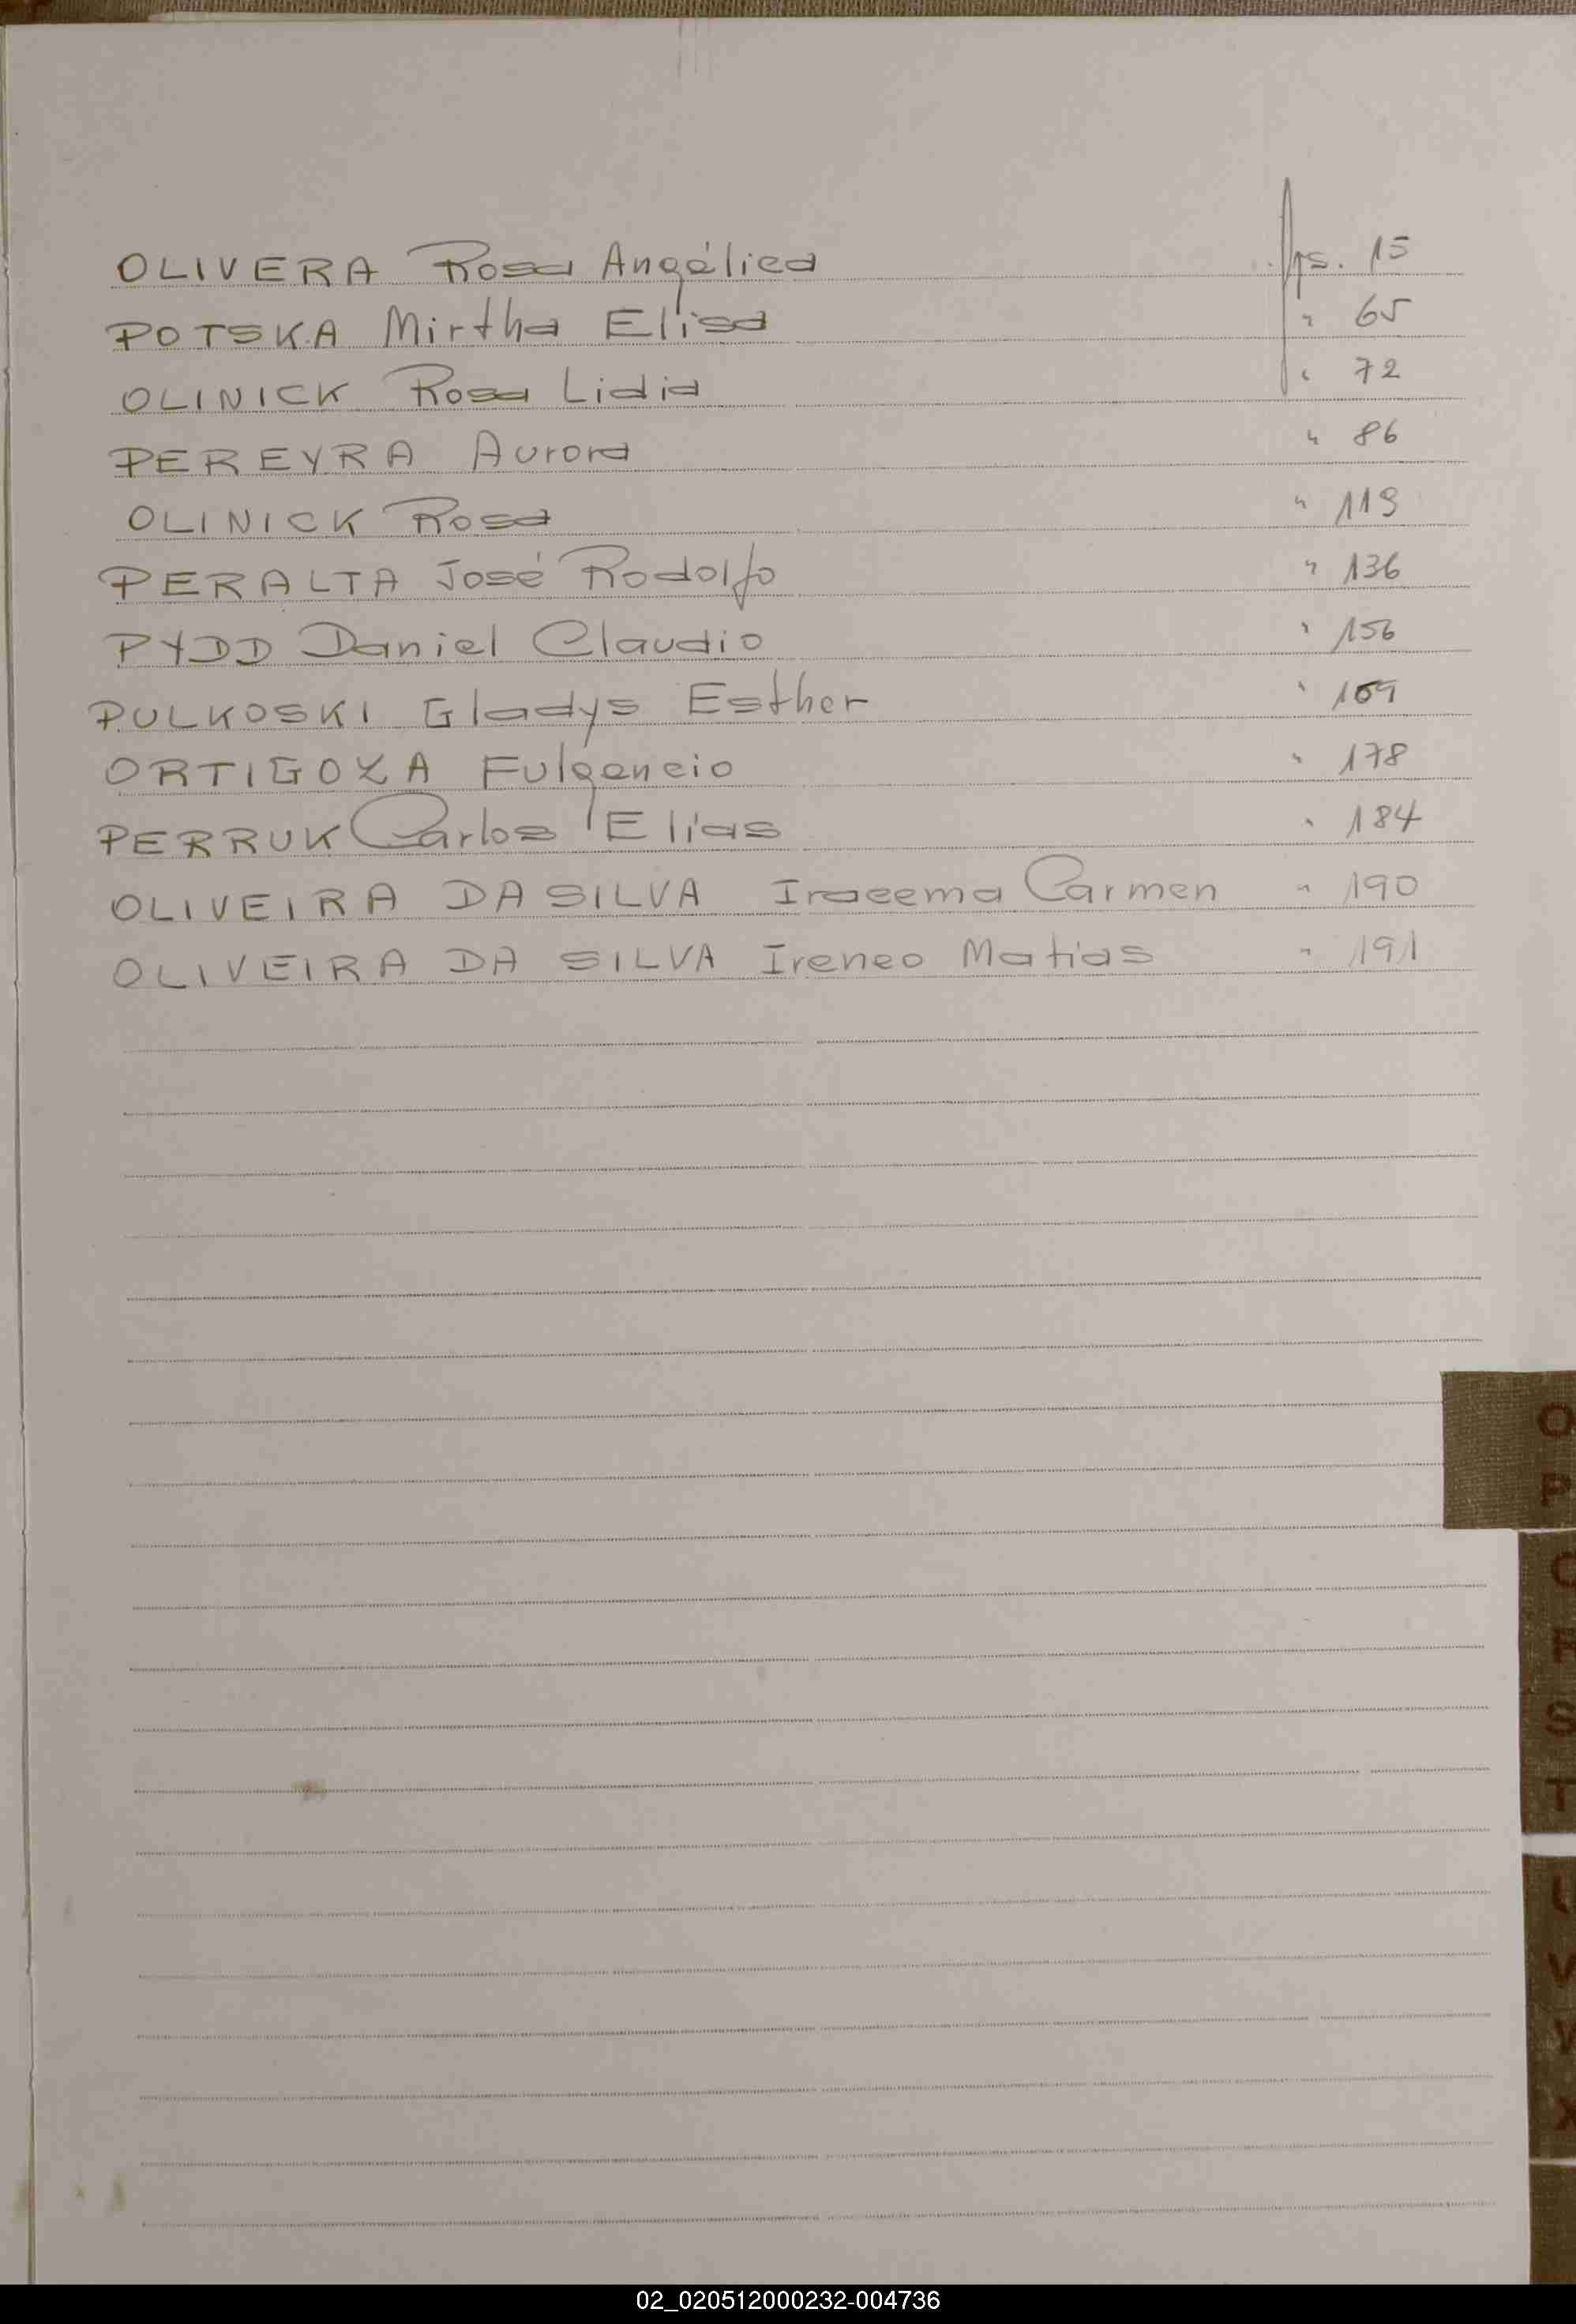 OLIVERA Rosa Angélica fs. 15
POTSKA Mirtha Elisa " 65
OLINICK Rosa Lidia " 72
PEREYRA Aurora " 86
OLINICK Rosa " 119
PERALTA José Rodolfo " 136
PYDD Daniel Claudio " 156
PULKOSKI Gladys Esther " 169
ORTIGOZA Fulgencio " 178
PERRUK Carlos Elías " 184
OLIVEIRA DA SILVA Iracema Carmen " 190
OLIVEIRA DA SILVA Ireneo Matias " 191
O
P
S
T
V
X
02_020512000232-004736